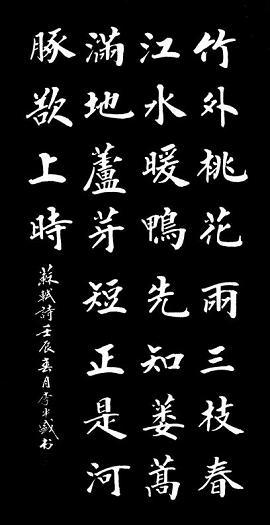 竹外桃花雨三枝春
江水暖鴨先知蔞蒿
滿地蘆芽短正是河
豚欲上時
蘇軾詩壬辰春月李书